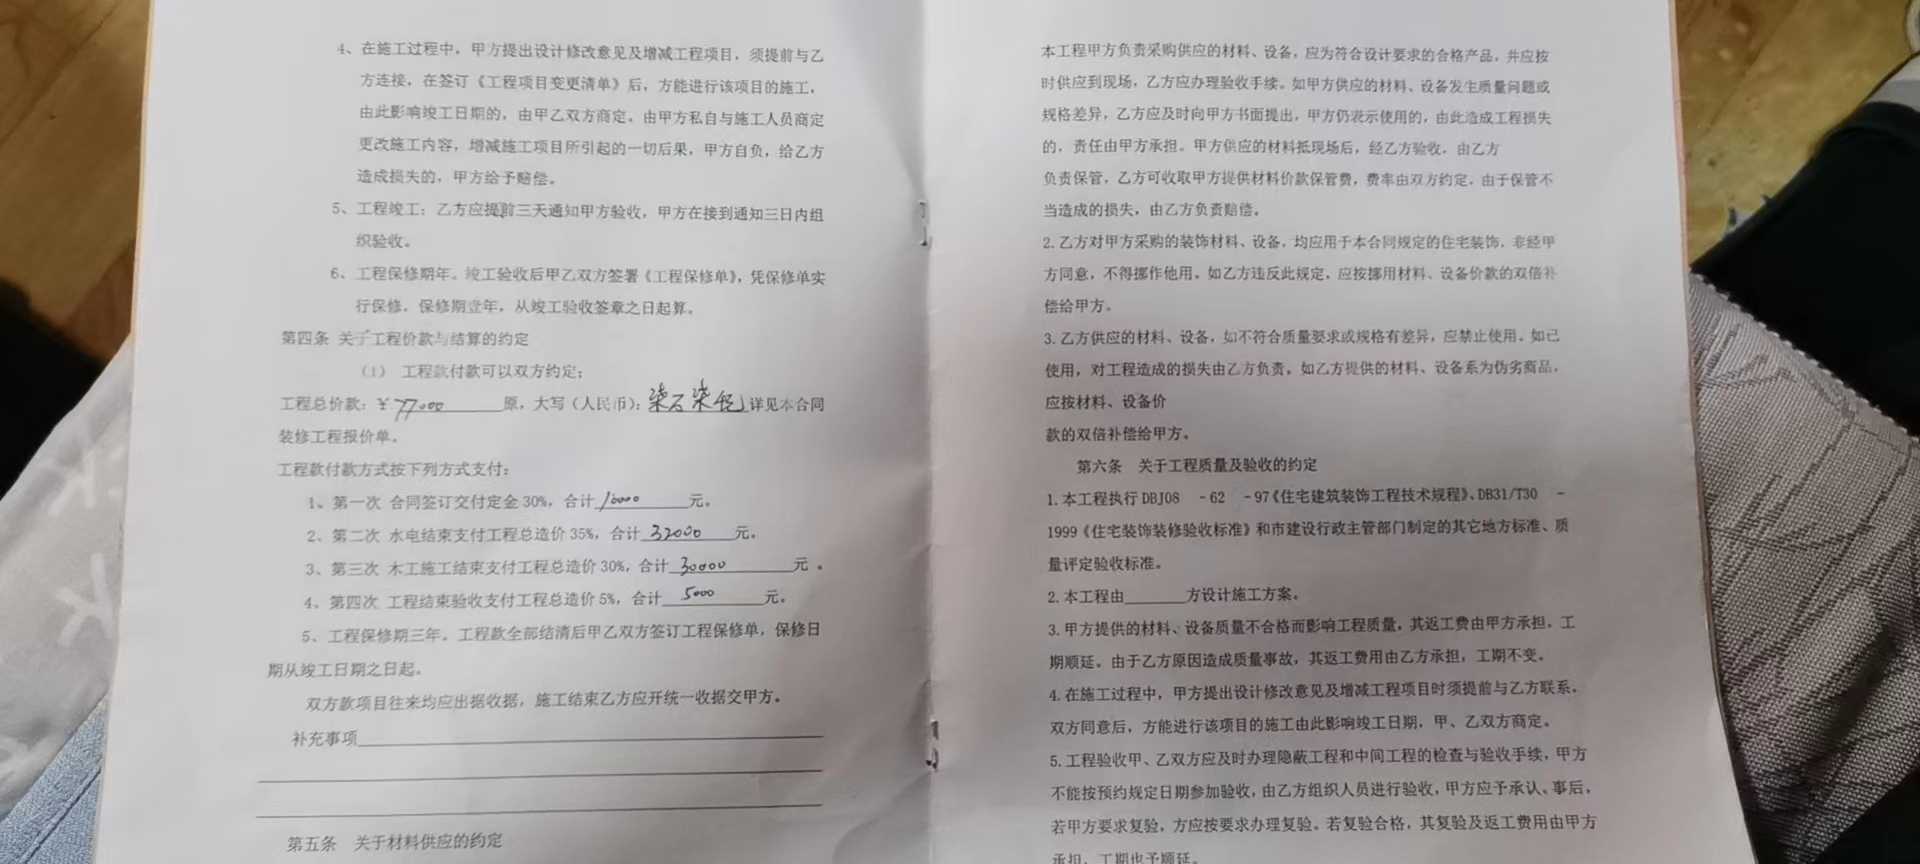 4、在施工过程中，甲方提出设计修改意见及增减工程项目，须提前与乙
方连接，在签订《工程项目变更清单》后，方能进行该项目的施工，
由此影响竣工日期的，由甲乙双方商定。由甲方私自与施工人员商定
更改施工内容，增减施工项目所引起的一切后果，甲方自负，给乙方
造成损失的，甲方给予赔偿。
5、工程竣工：乙方应提前三天通知甲方验收，甲方在接到通知三日内组
织验收。
6、工程保修期年。竣工验收后甲乙双方签署《工程保修单》，凭保修单实
行保修，保修期壹年，从竣工验收签章之日起算。
第四条 关于工程价款与结算的约定
（1） 工程款付款可以双方约定：
工程总价款：￥77000原，大写（人民币）：柒万柒仟详见本合同
装修工程报价单。
工程款付款方式按下列方式支付：
1、第一次 合同签订交付定金30%，合计10000元。
2、第二次 水电结束支付工程总造价35%，合计32000元。
3、第三次 木工施工结束支付工程总造价30%，合计30000元。
4、第四次 工程结束验收支付工程总造价5%，合计5000元。
5、工程保修期三年。工程款全部结清后甲乙双方签订工程保修单，保修日
期从竣工日期之日起。
双方款项目往来均应出据收据，施工结束乙方应开统一收据交甲方。
补充事项
第五条 关于材料供应的约定
本工程甲方负责采购供应的材料、设备，应为符合设计要求的合格产品，并应按
时供应到现场，乙方应办理验收手续。如甲方供应的材料、设备发生质量问题或
规格差异，乙方应及时向甲方书面提出，甲方仍表示使用的，由此造成工程损失
的，责任由甲方承担。甲方供应的材料抵现场后，经乙方验收，由乙方
负责保管，乙方可收取甲方提供材料价款保管费，费率由双方约定，由于保管不
当造成的损失，由乙方负责赔偿。
2.乙方对甲方采购的装饰材料、设备，均应用于本合同规定的住宅装饰，非经甲
方同意，不得挪作他用。如乙方违反此规定，应按挪用材料、设备价款的双倍补
偿给甲方。
3.乙方供应的材料、设备，如不符合质量要求或规格有差异，应禁止使用。如已
使用，对工程造成的损失由乙方负责。如乙方提供的材料、设备系为伪劣商品，
应按材料、设备价
款的双倍补偿给甲方。
第六条 关于工程质量及验收的约定
1.本工程执行DBJ08 -62 -97《住宅建筑装饰工程技术规程》、DB31/T30 -
1999《住宅装饰装修验收标准》和市建设行政主管部门制定的其它地方标准、质
量评定验收标准。
2.本工程由______方设计施工方案。
3.甲方提供的材料、设备质量不合格而影响工程质量，其返工费由甲方承担，工
期顺延。由于乙方原因造成质量事故，其返工费用由乙方承担，工期不变。
4.在施工过程中，甲方提出设计修改意见及增减工程项目时须提前与乙方联系，
双方同意后，方能进行该项目的施工由此影响竣工日期，甲、乙双方商定。
5.工程验收甲、乙双方应及时办理隐蔽工程和中间工程的检查与验收手续，甲方
不能按预约规定日期参加验收，由乙方组织人员进行验收，甲方应予承认、事后，
若甲方要求复验，方应按要求办理复验。若复验合格，其复验及返工费用由甲方
承担，工期也予顺延。